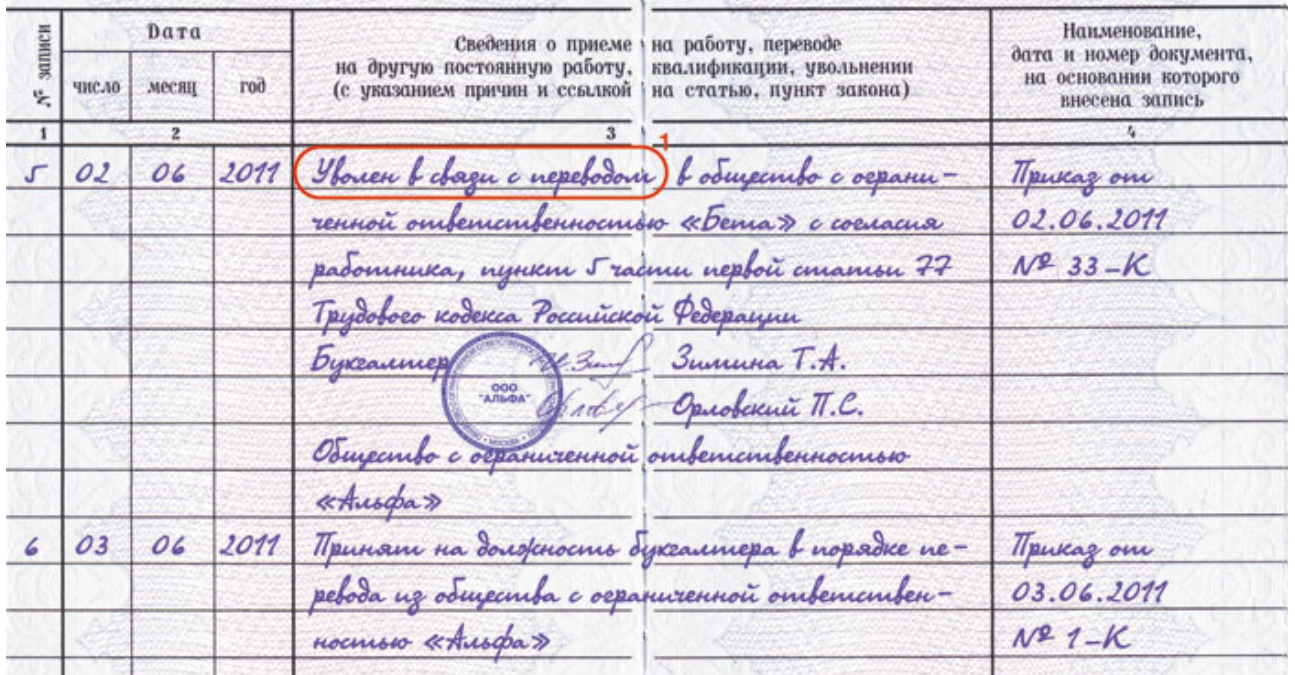 № записи
Дата
число
месяц
год
Сведения о приеме на работу, переводе
на другую постоянную работу, квалификации, увольнении
(с указанием причин и ссылкой на статью, пункт закона)
Наименование,
дата и номер документа,
на основании которого
внесена запись
1 2 3 4
1
5 02 06 2011 Уволен в связи с переводом в общество с ограни- Приказ от
ченной ответственностью «Бета» с согласия 02.06.2011
работника, пункт 5 части первой статьи 77 № 33-К
Трудового кодекса Российской Федерации
Бухгалтер Зимина Т.А.
ООО
"АЛЬФА"
МОСКВА
Орловский П.С.
Общество с ограниченной ответственностью
«Альфа»
6 03 06 2011 Принят на должность бухгалтера в порядке пе- Приказ от
ревода из общества с ограниченной ответствен- 03.06.2011
ностью «Альфа» № 1-К